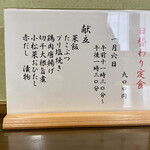 日替わり定食
九〇〇円
一月六日
午前十一時三十分〜
午後一時三十分
献立
菜飯
たこぶつ
ブリ塩焼き
鶏肉唐揚げ
切干大根旨煮
小松菜おひたし
赤だし 漬物